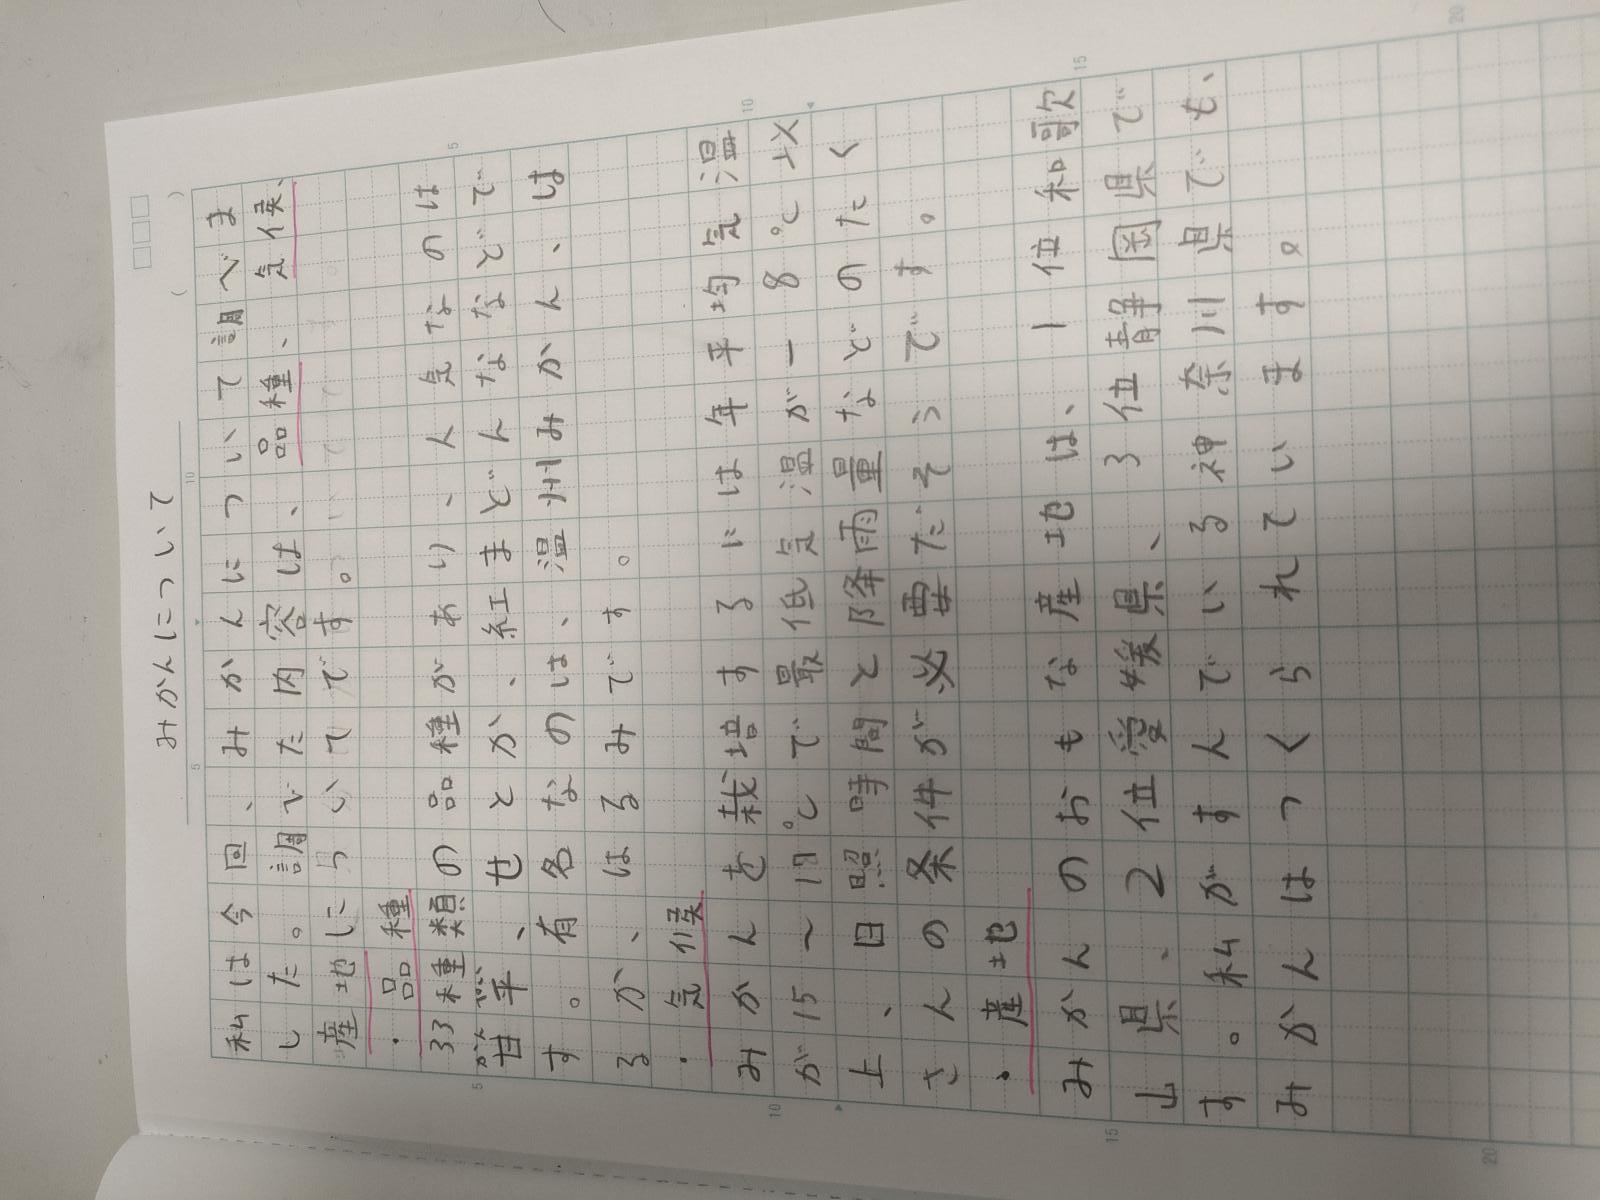 みかんについて
私は今回、みかんについて調べま
した。調べた内容は、品種、気候、
産地についてです。
・品種
33種類の品種があり、人気なのは
甘平、せとか、紅まどんななどで
がんぺい
す。有名なのは、温州みかん、は
るか、はるみです。
・気候
みかんを栽培するには年平均気温
が15～18℃で最低気温が－8℃以
上、日照時間と降雨量などのたく
さんの条件が必要だそうです。
・産地
みかんのおもな産地は、1位和歌
山県、2位愛媛県、3位静岡県で
す。私がすんでいる神奈川県でも、
みかんはつくられています。
5
10
15
20
5
10
5
10
15
20